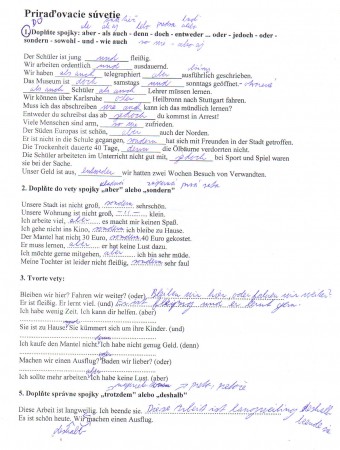 Priraďovacie súvetie
1. Doplňte spojky: aber - als auch - denn - doch - entweder ... oder - jedoch - oder -
sondern - sowohl - und - wie auch
Der Schüler ist jung und fleißig.
Wir arbeiten ordentlich und ausdauernd.
Wir haben als auch telegraphiert aber ausführlich geschrieben.
Das Museum ist doch samstags und sonntags geöffnet
als auch Schüler als auch Lehrer müssen lernen.
Wir können über Karlsruhe oder Heilbronn nach Stuttgart fahren.
Muss ich das abschreiben kann ich das mündlich lernen?
Entweder du schreibst das ab jedoch du kommst in Arrest!
Viele Menschen sind arm, zufrieden.
Der Süden Europas ist schön, aber auch der Norden.
Er ist nicht in die Schule gegangen, sondern hat sich mit Freunden in der Stadt getroffen.
Die Trockenheit dauerte 40 Tage, denn die Ölbäume verdorrten nicht.
Die Schüler arbeiteten im Unterricht nicht gut mit, jedoch bei Sport und Spiel waren
sie bei der Sache.
Unser Geld ist aus, entweder wir hatten zwei Wochen Besuch von Verwandten.
2. Doplňte do vety spojky „aber" alebo „sondern"
Unsere Stadt ist nicht groß, sondern sehr schön.
Unsere Wohnung ist nicht groß, klein.
Ich arbeite viel, aber es macht mir keinen Spaß.
Ich gehe nicht ins Kino, sondern ich bleibe zu Hause.
Der Mantel hat nicht 30 Euro, sondern 40 Euro gekostet.
Er muss lernen, aber er hat keine Lust dazu.
Ich möchte gerne mitgehen, aber ich bin sehr müde.
Meine Tochter ist leider nicht fleißig, sondern sehr faul
3. Tvorte vety:
Bleiben wir hier? Fahren wir weiter? (oder) Bleiben wir hier oder fahren wir weiter?
Er ist fleißig. Er lernt viel. (und) Er ist und er lernt
Ich habe wenig Zeit. Ich kann dir helfen. (aber)
aber
Sie ist zu Hause. Sie kümmert sich um ihre Kinder. (und)
und
Ich kaufe den Mantel nicht. Ich habe nicht genug Geld. (denn)
denn
Machen wir einen Ausflug? Baden wir lieber? (oder)
oder
Ich sollte mehr arbeiten. Ich habe keine Lust. (aber)
aber
5. Doplňte správne spojky „trotzdem" alebo „deshalb"
Diese Arbeit ist langweilig. Ich beende sie. Diese Arbeit ist langweilig deshalb
beende
Es ist schön heute. Wir machen einen Ausflug.
deshalb